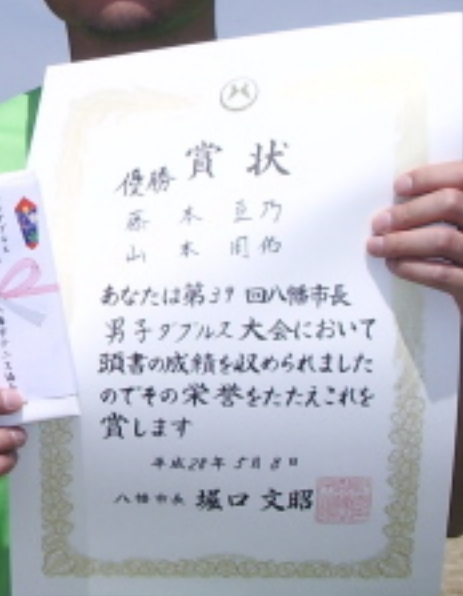 賞状
優勝
藤本 直乃
山本 周佑
あなたは第39回八幡市長
男子ダブルス大会において
頭書の成績を収められました
のでその栄誉をたたえこれを
賞します
平成28年5月8日
八幡市長 堀口 文昭